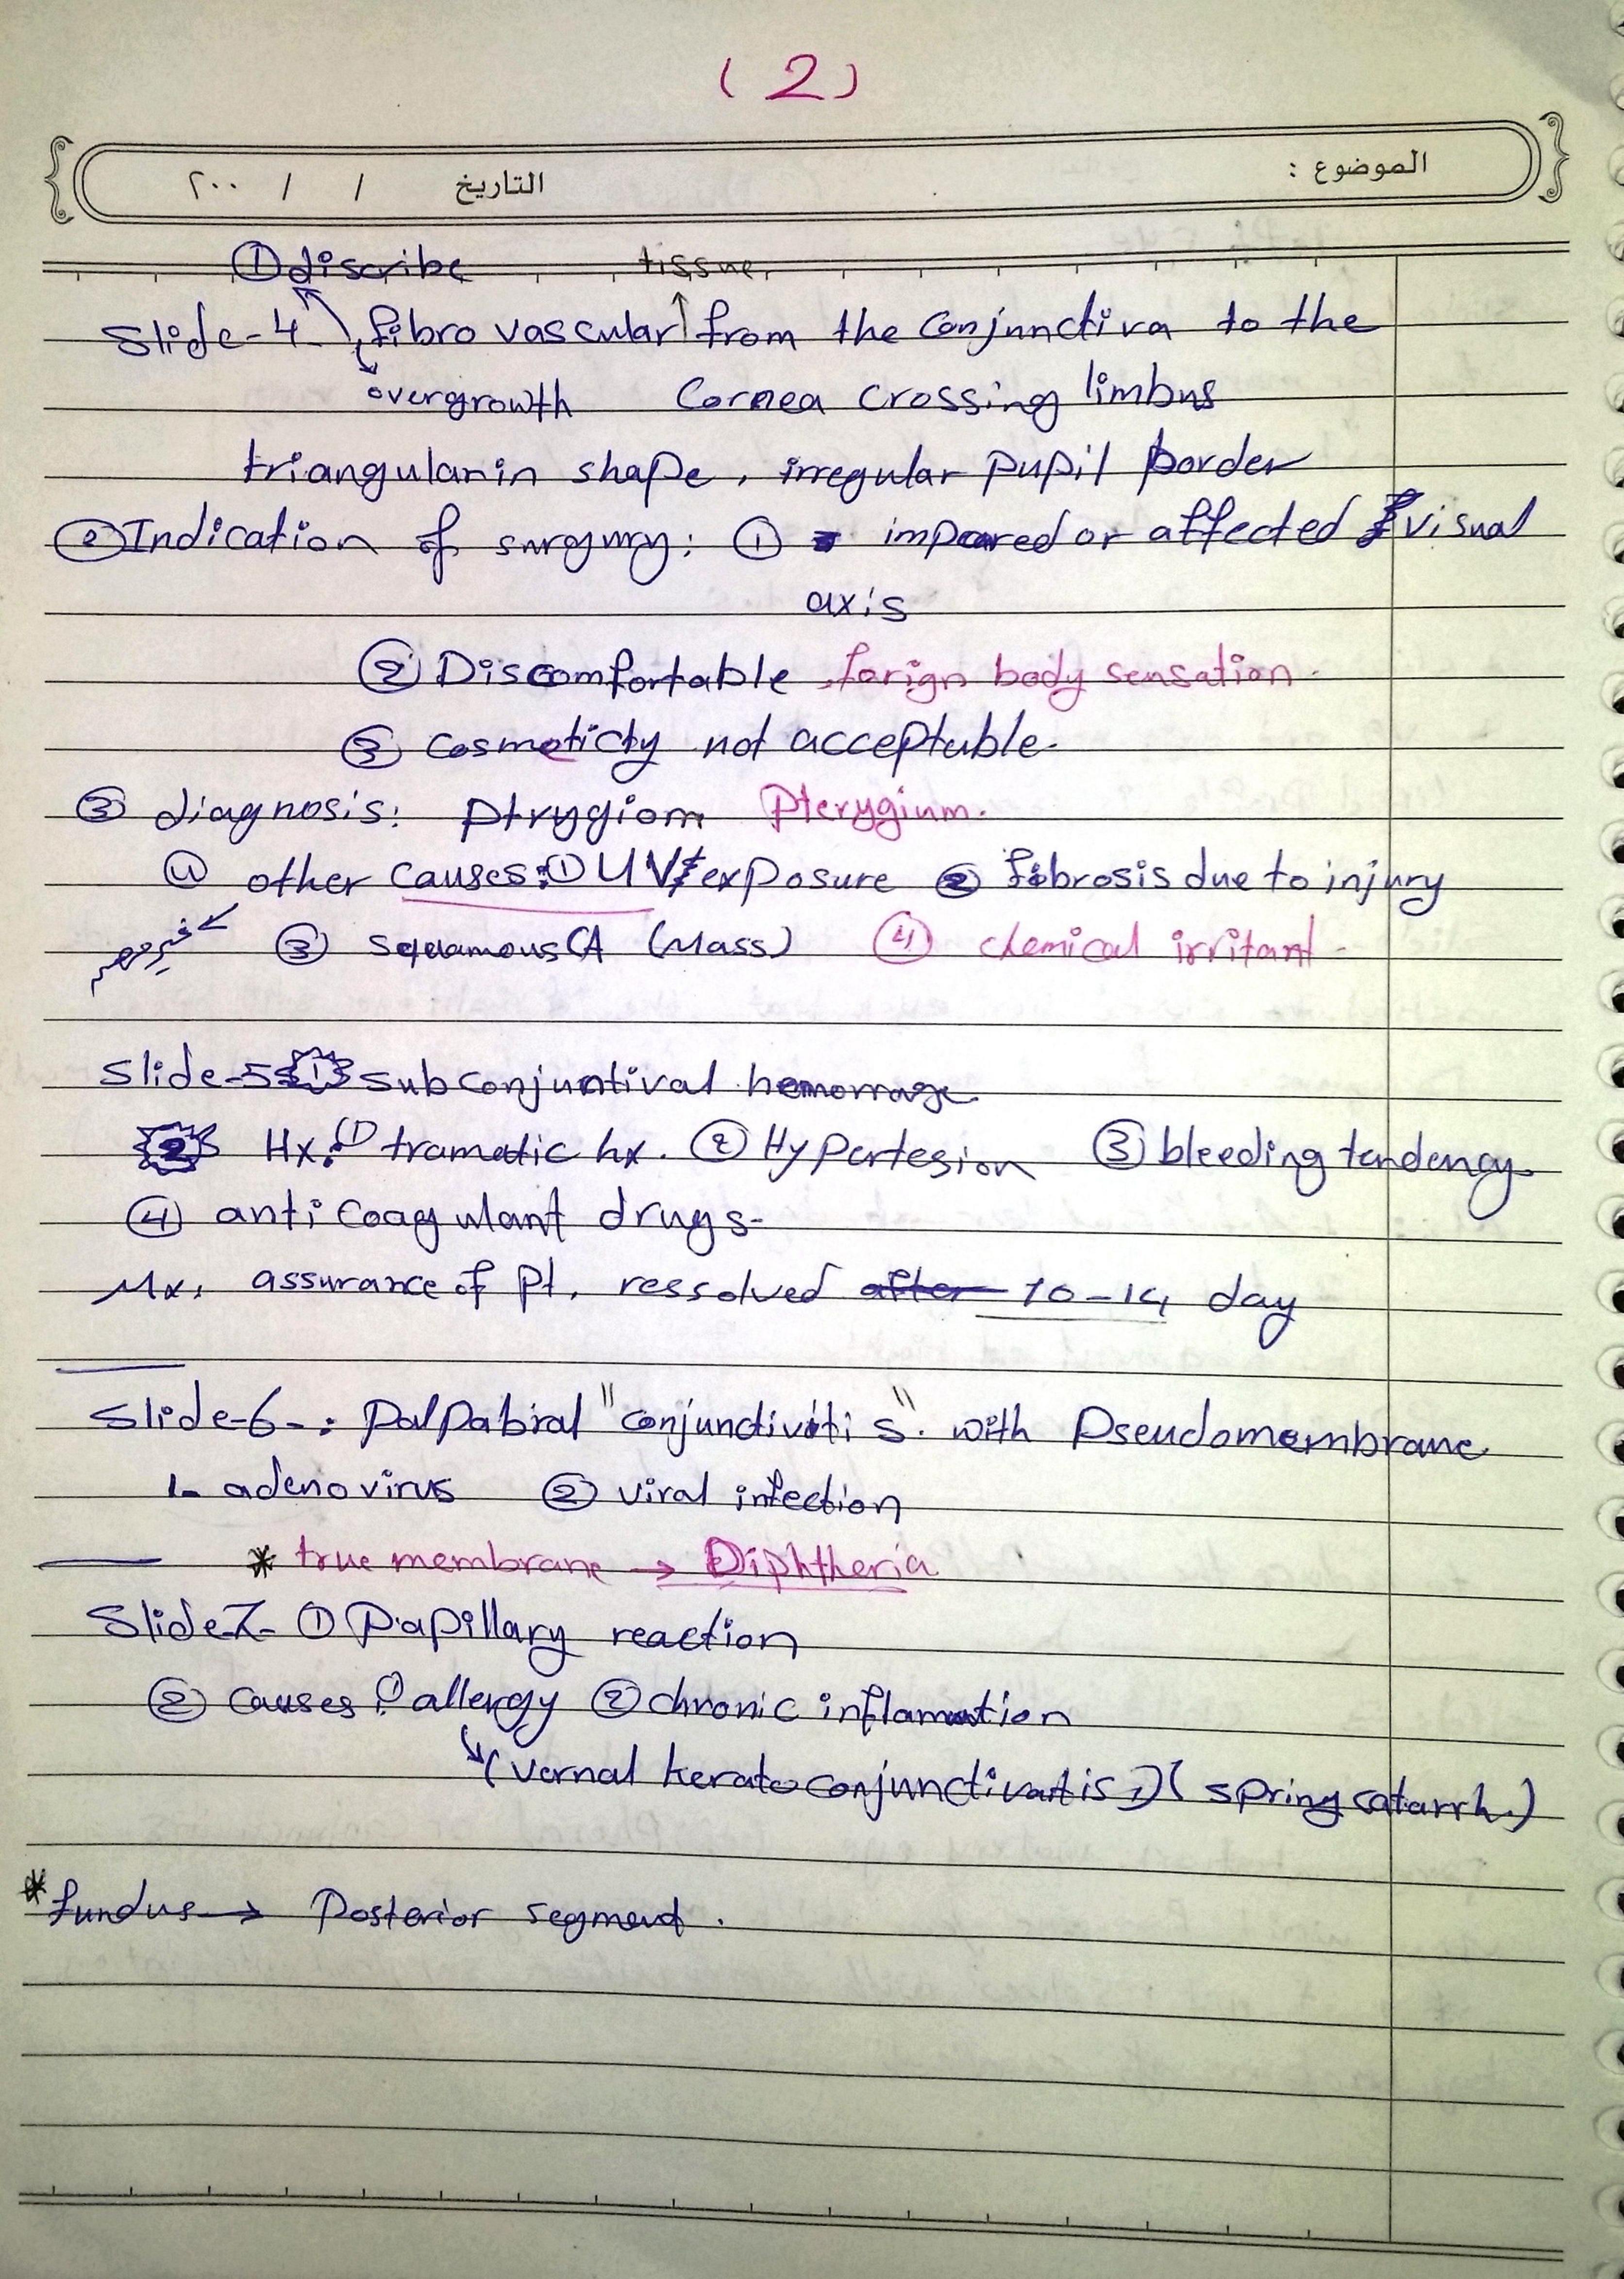 (2)
الموضوع : التاريخ / / ٢٠٠
① discribe tissue
Slide-4 fibro vascular from the conjunctiva to the
overgrowth Cornea crossing limbus
triangular in shape, irregular pupil border
② Indication of surgury: ① impared or affected visual
axis
② Discomfortable, forign body sensation.
③ cosmeticty not acceptable.
③ diagnosis: ptrygiom Pterygium.
④ other causes: ① UV exposure ② fibrosis due to injury
③ squamous CA (Mass) ④ chemical irritant.
غير مهم
Slide-5 ① subconjuntival hemorrage.
② Hx: ① tramatic hx. ② Hypertesion ③ bleeding tendency
④ anti coagulant drugs.
Mx, assurance of pt, ressolved after 10-14 day
Slide-6-: palpabral "conjunctivitis". with Pseudomembrane
1- adenovirus ② viral infection
* true membrane → Diphtheria
Slide7- ① Papillary reaction
② causes: ① allergy ② chronic inflamation
(vernal keratoconjunctivatis,) (spring catarrh.)
* fundus → Posterior segment.